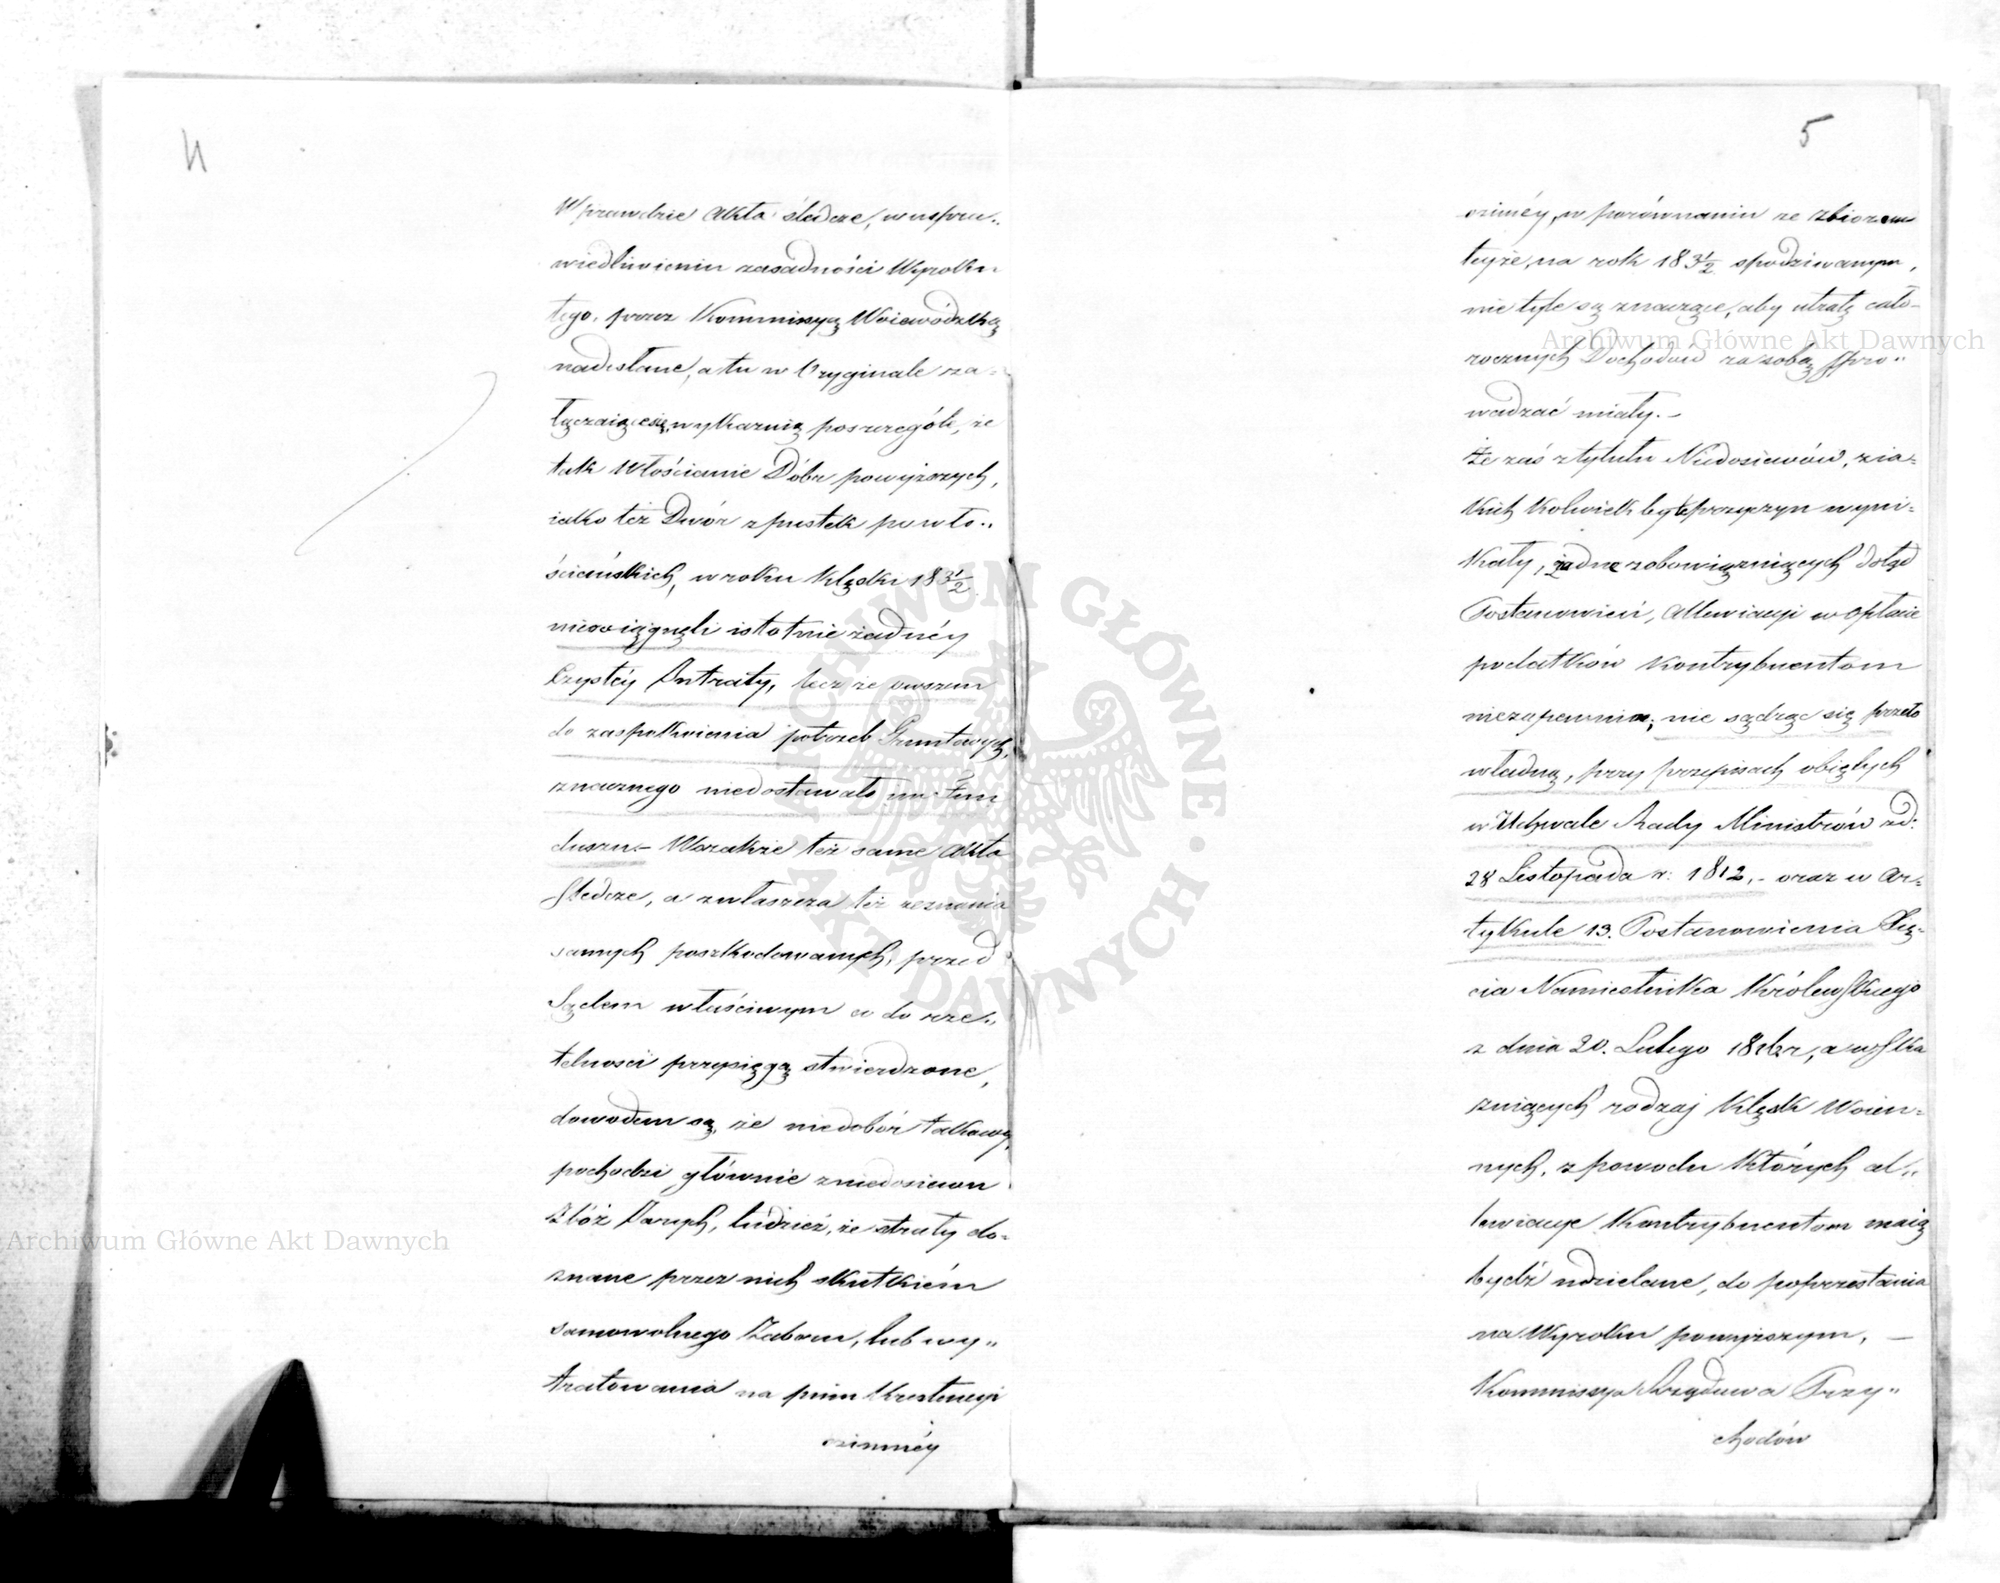 4
Wprawdzie Akta śledcze, w uspra„
wiedliwieniu zasadności Wyroku
tego, przez Kommissyą Woiewódzką
nadesłane, a tu w Oryginale za„
łączaiące się, wykazuią poszczególe, że
tak Włościanie Dóbr powyższych,
iako też Dwór z pustek po wło„
ściańskich, w roku klęski 183½
nieosiągnęli istotnie żadnéy
Czystéy Intraty, lecz że owszem
do zaspokoienia potrzeb Gruntowych,
znacznego niedostawało im Fun
duszu. – Wszakże też same Akta
Śledcze, a zwłaszcza też zeznania
samych poszkodowanych, przed
Sądem właściwym co do rze„
telności przysięgą stwierdzone,
dowodem są, że niedobór takowy,
pochodzi głównie z niedosiewu
Zbóż Jarych, tudzież, że straty do„
znane przez nich skutkiém
samowolnego Zaboru, lub wy„
tratowania na pniu Krestencyi
oziméy
5
oziméy, w porównaniu ze zbiorem
teyże, na rok 183½ spodziewanym,
nie tyle są znaczące, aby utratę cało„
rocznych Dochodów za sobą spro„
wadzać miały. –
Że zaś z tytułu Niedosiewów, z ia„
kich kolwiek by te przyczyn wyni„
kały, żadne z obowiązuiących dotąd
Postanowień, Allewiacyi w opłacie
podatków Kontrybuentom
niezapewnia; nie sądząc się przeto
władną, przy przepisach obiętych
w Uchwale Rady Ministrów z d:
28 Listopada r: 1812, – oraz w Ar„
tykule 13. Postanowienia Xię„
cia Namiestnika Królewskiego
z dnia 20. Lutego a wska
zuiących rodzaj klęsk Woien„
nych, z powodu których al„
lewiacye Kontrybuentom maią
bydź udzielane, do poprzestania
na Wyroku powyższym, –
Kommissya Rządowa Przy„
chodów
Archiwum Główne Akt Dawnych
Archiwum Główne Akt Dawnych
ARCHIWUM GŁÓWNE · AKT DAWNYCH ·